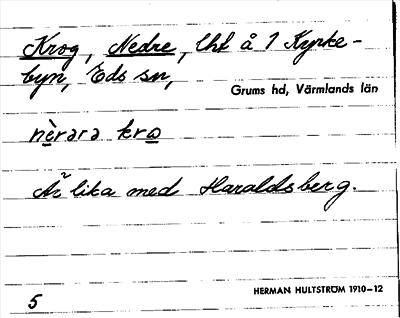 Krog, Nedre, lht å 1 Kyrke-
byn, Eds sn,
Grums hd, Värmlands län
nèrara kro
Är lika med Haraldsberg.
HERMAN HULTSTRÖM 1910–12
5